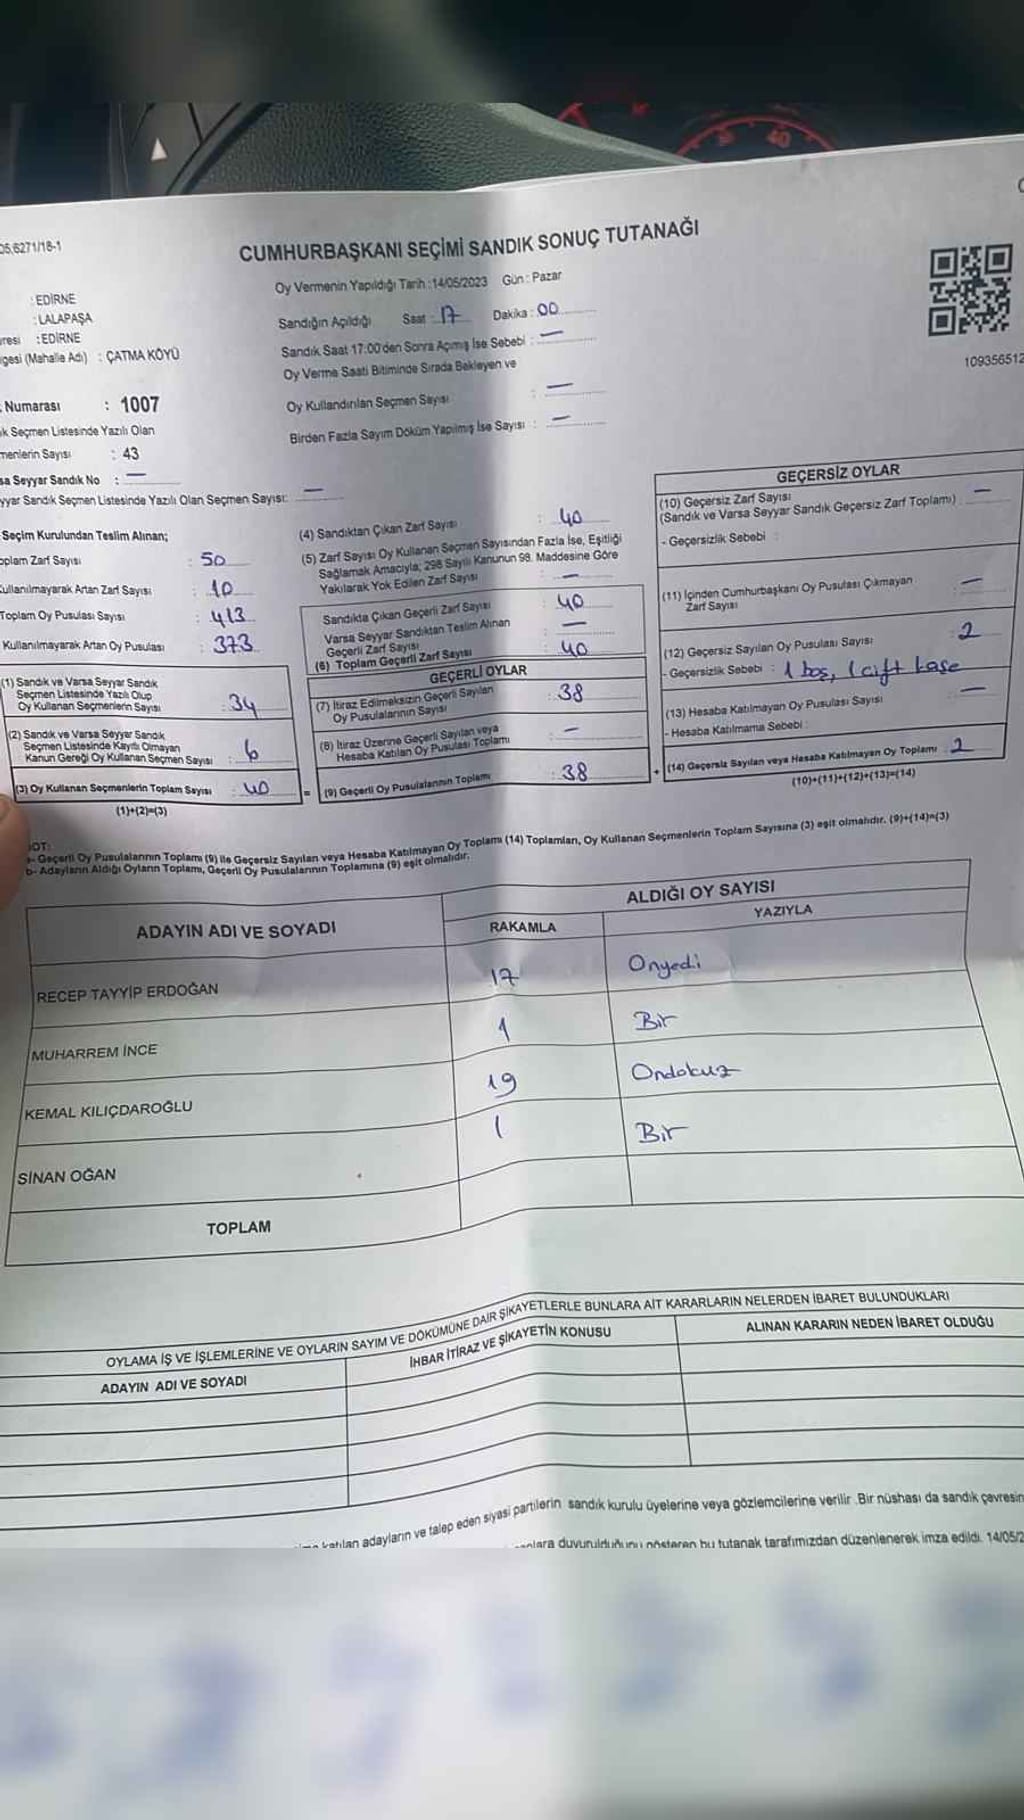 05.6271/18-1
CUMHURBAŞKANI SEÇİMİ SANDIK SONUÇ TUTANAĞI
Oy Vermenin Yapıldığı Tarih : 14/05/2023 Gün : Pazar
: EDİRNE
: LALAPAŞA
: EDİRNE
(Mahalle Adı) : ÇATMA KÖYÜ
Sandığın Açıldığı Saat : 17 Dakika : 00
Sandık Saat 17:00'den Sonra Açımış İse Sebebi : —
Oy Verme Saati Bitiminde Sırada Bekleyen ve
Oy Kullandırılan Seçmen Sayısı : —
Birden Fazla Sayım Döküm Yapılmış İse Sayısı : —
109356512
Numarası : 1007
Seçmen Listesinde Yazılı Olan
Sayısı : 43
Seyyar Sandık No : —
Sandık Seçmen Listesinde Yazılı Olan Seçmen Sayısı: —
Seçim Kurulundan Teslim Alınan;
Zarf Sayısı : 50
Kullanılmayarak Artan Zarf Sayısı : 10
Toplam Oy Pusulası Sayısı : 413
Kullanılmayarak Artan Oy Pusulası : 373
(1) Sandık ve Varsa Seyyar Sandık
Seçmen Listesinde Yazılı Olup
Oy Kullanan Seçmenlerin Sayısı : 34
(2) Sandık ve Varsa Seyyar Sandık
Seçmen Listesinde Kayıtlı Olmayan
Kanun Gereği Oy Kullanan Seçmen Sayısı : 6
(3) Oy Kullanan Seçmenlerin Toplam Sayısı : 40
(1)+(2)=(3)
(4) Sandıktan Çıkan Zarf Sayısı : 40
(5) Zarf Sayısı Oy Kullanan Seçmen Sayısından Fazla İse, Eşitliği
Sağlamak Amacıyla; 298 Sayılı Kanunun 98. Maddesine Göre
Yakılarak Yok Edilen Zarf Sayısı : —
Sandıkta Çıkan Geçerli Zarf Sayısı : 40
Varsa Seyyar Sandıktan Teslim Alınan
Geçerli Zarf Sayısı : —
(6) Toplam Geçerli Zarf Sayısı : 40
GEÇERLİ OYLAR
(7) İtiraz Edilmeksizin Geçerli Sayılan
Oy Pusulalarının Sayısı : 38
(8) İtiraz Üzerine Geçerli Sayılan veya
Hesaba Katılan Oy Pusulası Toplamı : —
= (9) Geçerli Oy Pusulalarının Toplamı : 38
GEÇERSİZ OYLAR
(10) Geçersiz Zarf Sayısı
(Sandık ve Varsa Seyyar Sandık Geçersiz Zarf Toplamı) : —
- Geçersizlik Sebebi :
(11) İçinden Cumhurbaşkanı Oy Pusulası Çıkmayan
Zarf Sayısı : —
(12) Geçersiz Sayılan Oy Pusulası Sayısı : 2
- Geçersizlik Sebebi : 1 boş, 1 çift kaşe
(13) Hesaba Katılmayan Oy Pusulası Sayısı : —
- Hesaba Katılmama Sebebi :
+ (14) Geçersiz Sayılan veya Hesaba Katılmayan Oy Toplamı : 2
(10)+(11)+(12)+(13)=(14)
NOT:
a- Geçerli Oy Pusulalarının Toplamı (9) ile Geçersiz Sayılan veya Hesaba Katılmayan Oy Toplamı (14) Toplamları, Oy Kullanan Seçmenlerin Toplam Sayısına (3) eşit olmalıdır. (9)+(14)=(3)
b- Adayların Aldığı Oyların Toplamı, Geçerli Oy Pusulalarının Toplamına (9) eşit olmalıdır.
ADAYIN ADI VE SOYADI
ALDIĞI OY SAYISI
RAKAMLA YAZIYLA
RECEP TAYYİP ERDOĞAN 17 Onyedi
MUHARREM İNCE 1 Bir
KEMAL KILIÇDAROĞLU 19 Ondokuz
SİNAN OĞAN 1 Bir
TOPLAM
OYLAMA İŞ VE İŞLEMLERİNE VE OYLARIN SAYIM VE DÖKÜMÜNE DAİR ŞİKAYETLERLE BUNLARA AİT KARARLARIN NELERDEN İBARET BULUNDUKLARI
ADAYIN ADI VE SOYADI İHBAR İTİRAZ VE ŞİKAYETİN KONUSU ALINAN KARARIN NEDEN İBARET OLDUĞU
katılan adayların ve talep eden siyasi partilerin sandık kurulu üyelerine veya gözlemcilerine verilir .Bir nüshası da sandık çevresin
duyurulduğunu gösteren bu tutanak tarafımızdan düzenlenerek imza edildi. 14/05/2